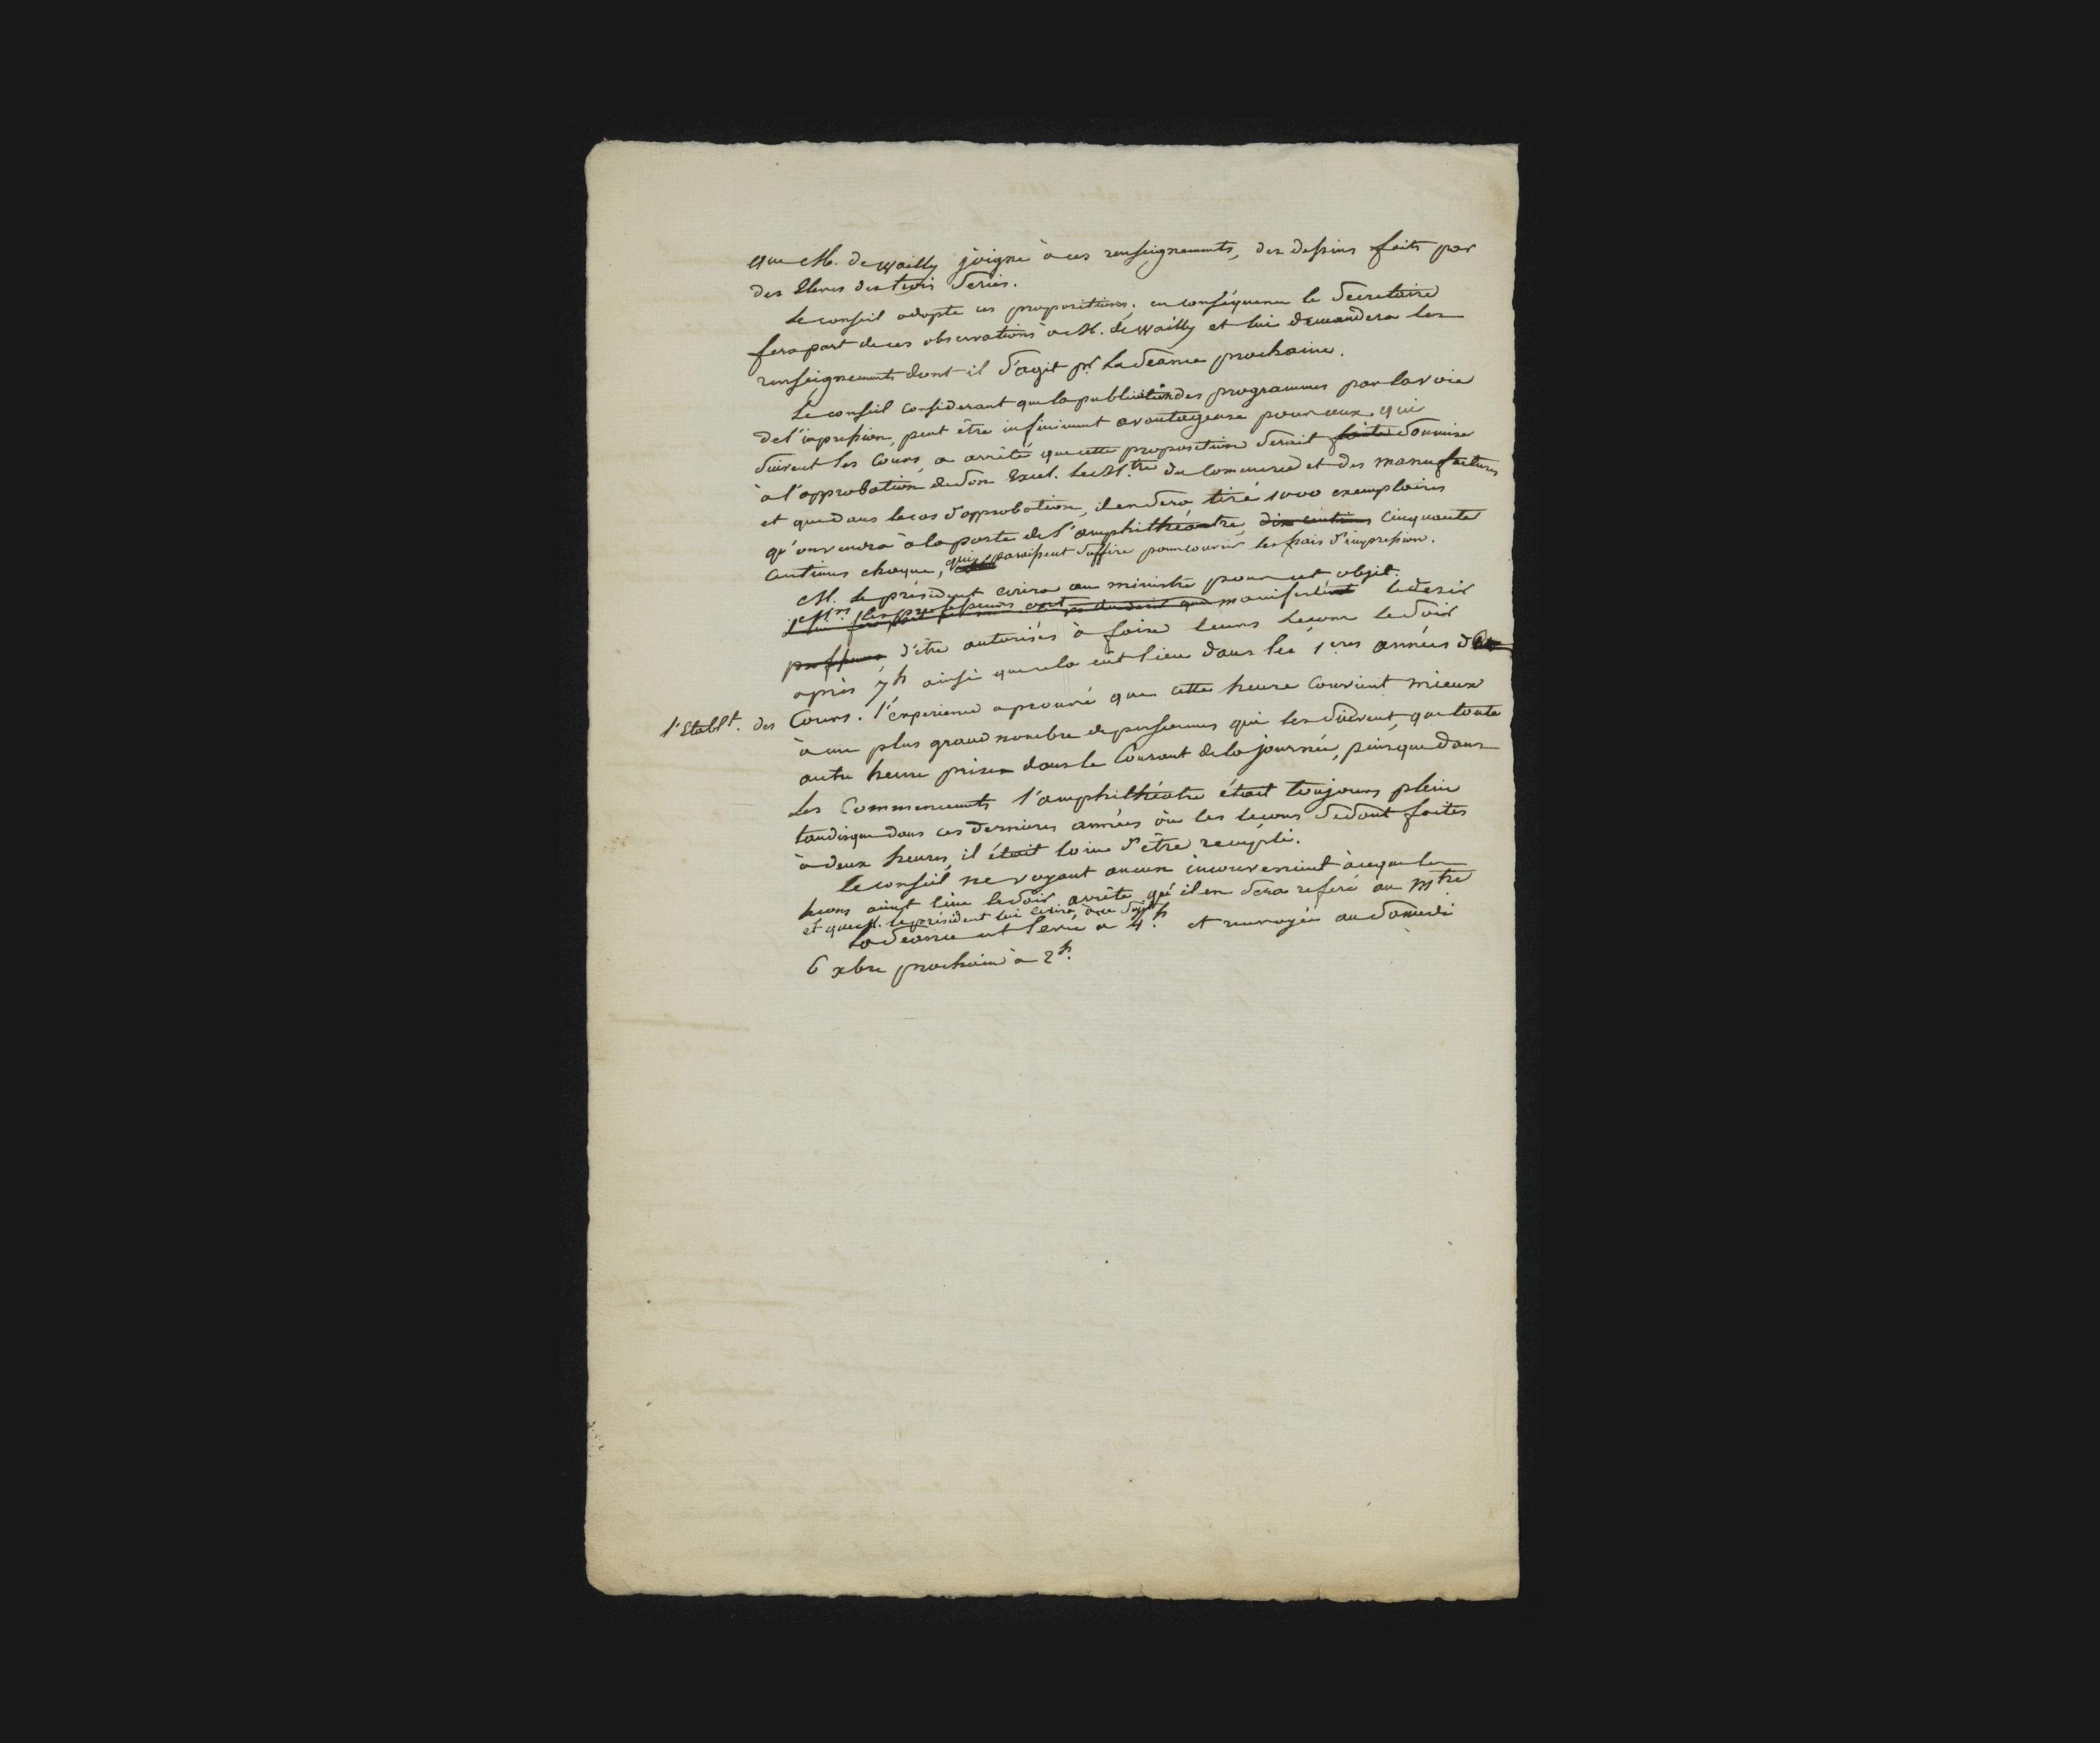 que M. de Wailly joigne à ces renseignements, des dessins faits par
des Eleves des trois Series.
Le conseil adopte ces propositions. en conséquence le Secretaire
fera part de ces observations à M. de Wailly et lui demandera les
renseignements dont il s'agit pr. la Séance prochaine.
Le conseil considerant que la publication des programmes par la voie
de l'impression, peut être infiniment avantageuse pour ceux qui
suivent les Cours, a arrêté que cette proposition serait faite soumise
à l'approbation de Son Excel. le Mtre du Commerce et des manufactures
et que dans le cas d'approbation, il en sera tiré 1000 exemplaires
qu'on vendra à la porte de l'amphithéatre, dix centimes cinquante
centimes chaque, qui paraissent suffire pour couvrir les frais d'impression.
M. le président ecrira au ministre pour cet objet.
Mrs les professeurs ont manifesté le desir
professeurs d'être autorisés à faire leurs leçons le soir
après 7h ainsi que cela eût lieu dans les 1eres années de
l'Etablt. des Cours. l'experience a prouvé que cette heure convient mieux
à un plus grand nombre de personnes qui les suivent, que toute
autre heure prise dans le Courant de la journée, puisque dans
les Commencements l'amphithéatre était toujours plein
tandis que dans ces dernieres années où les leçons se sont faites
à deux heures, il était loin d'être rempli.
Le conseil ne voyant aucun inconvenient à ce que les
leçons aient lieu le soir, arrête qu'il en sera referé au Mtre
et que M. le président lui ecrira à ce sujet
La Séance est levée à 4h. et renvoyée au Samedi
6 xbre prochain à 2h.